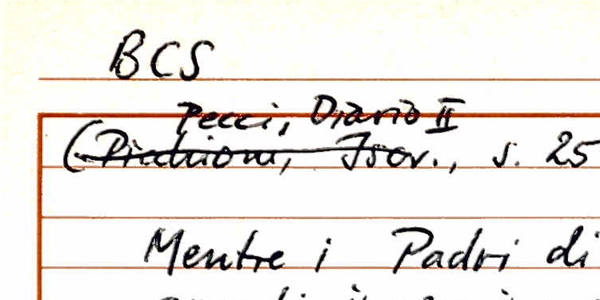 BCS
Pecci, Diario II
(Picchioni, Iscr., s. 25
Mentre i Padri di